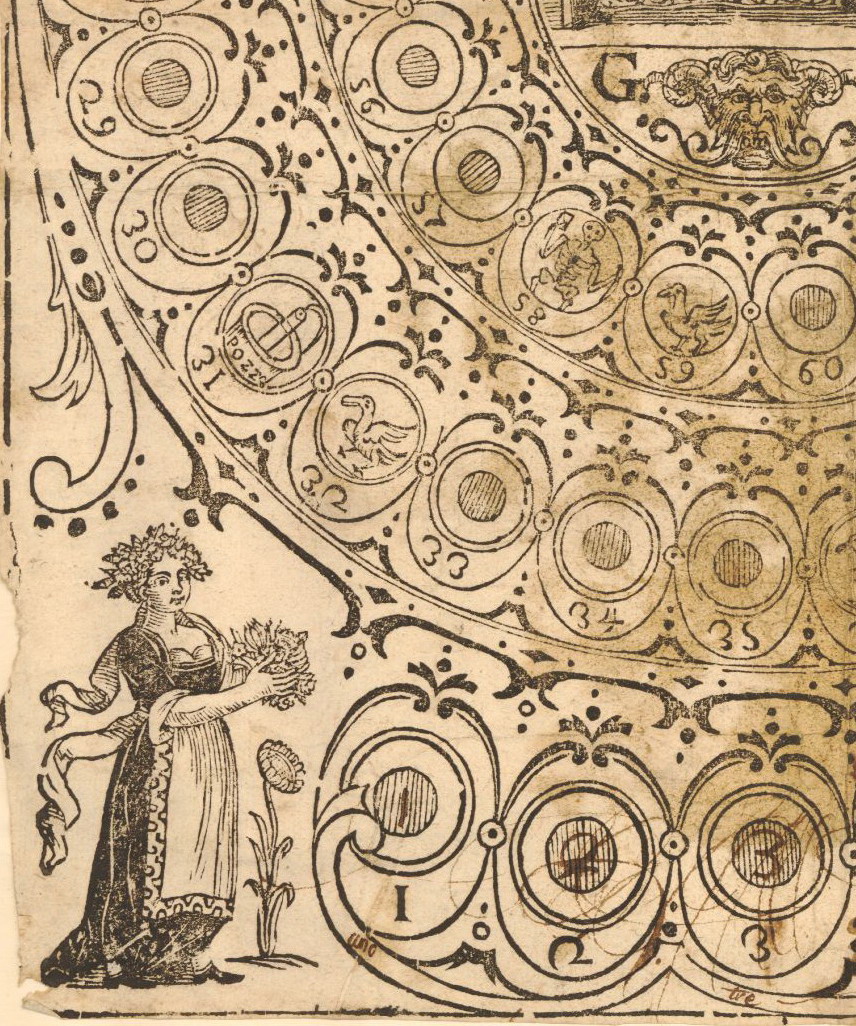 G.
29
56
30
57
58
59
60
31
Pozzo
32
33
34
35
1
2
3
2
3
uno
tre